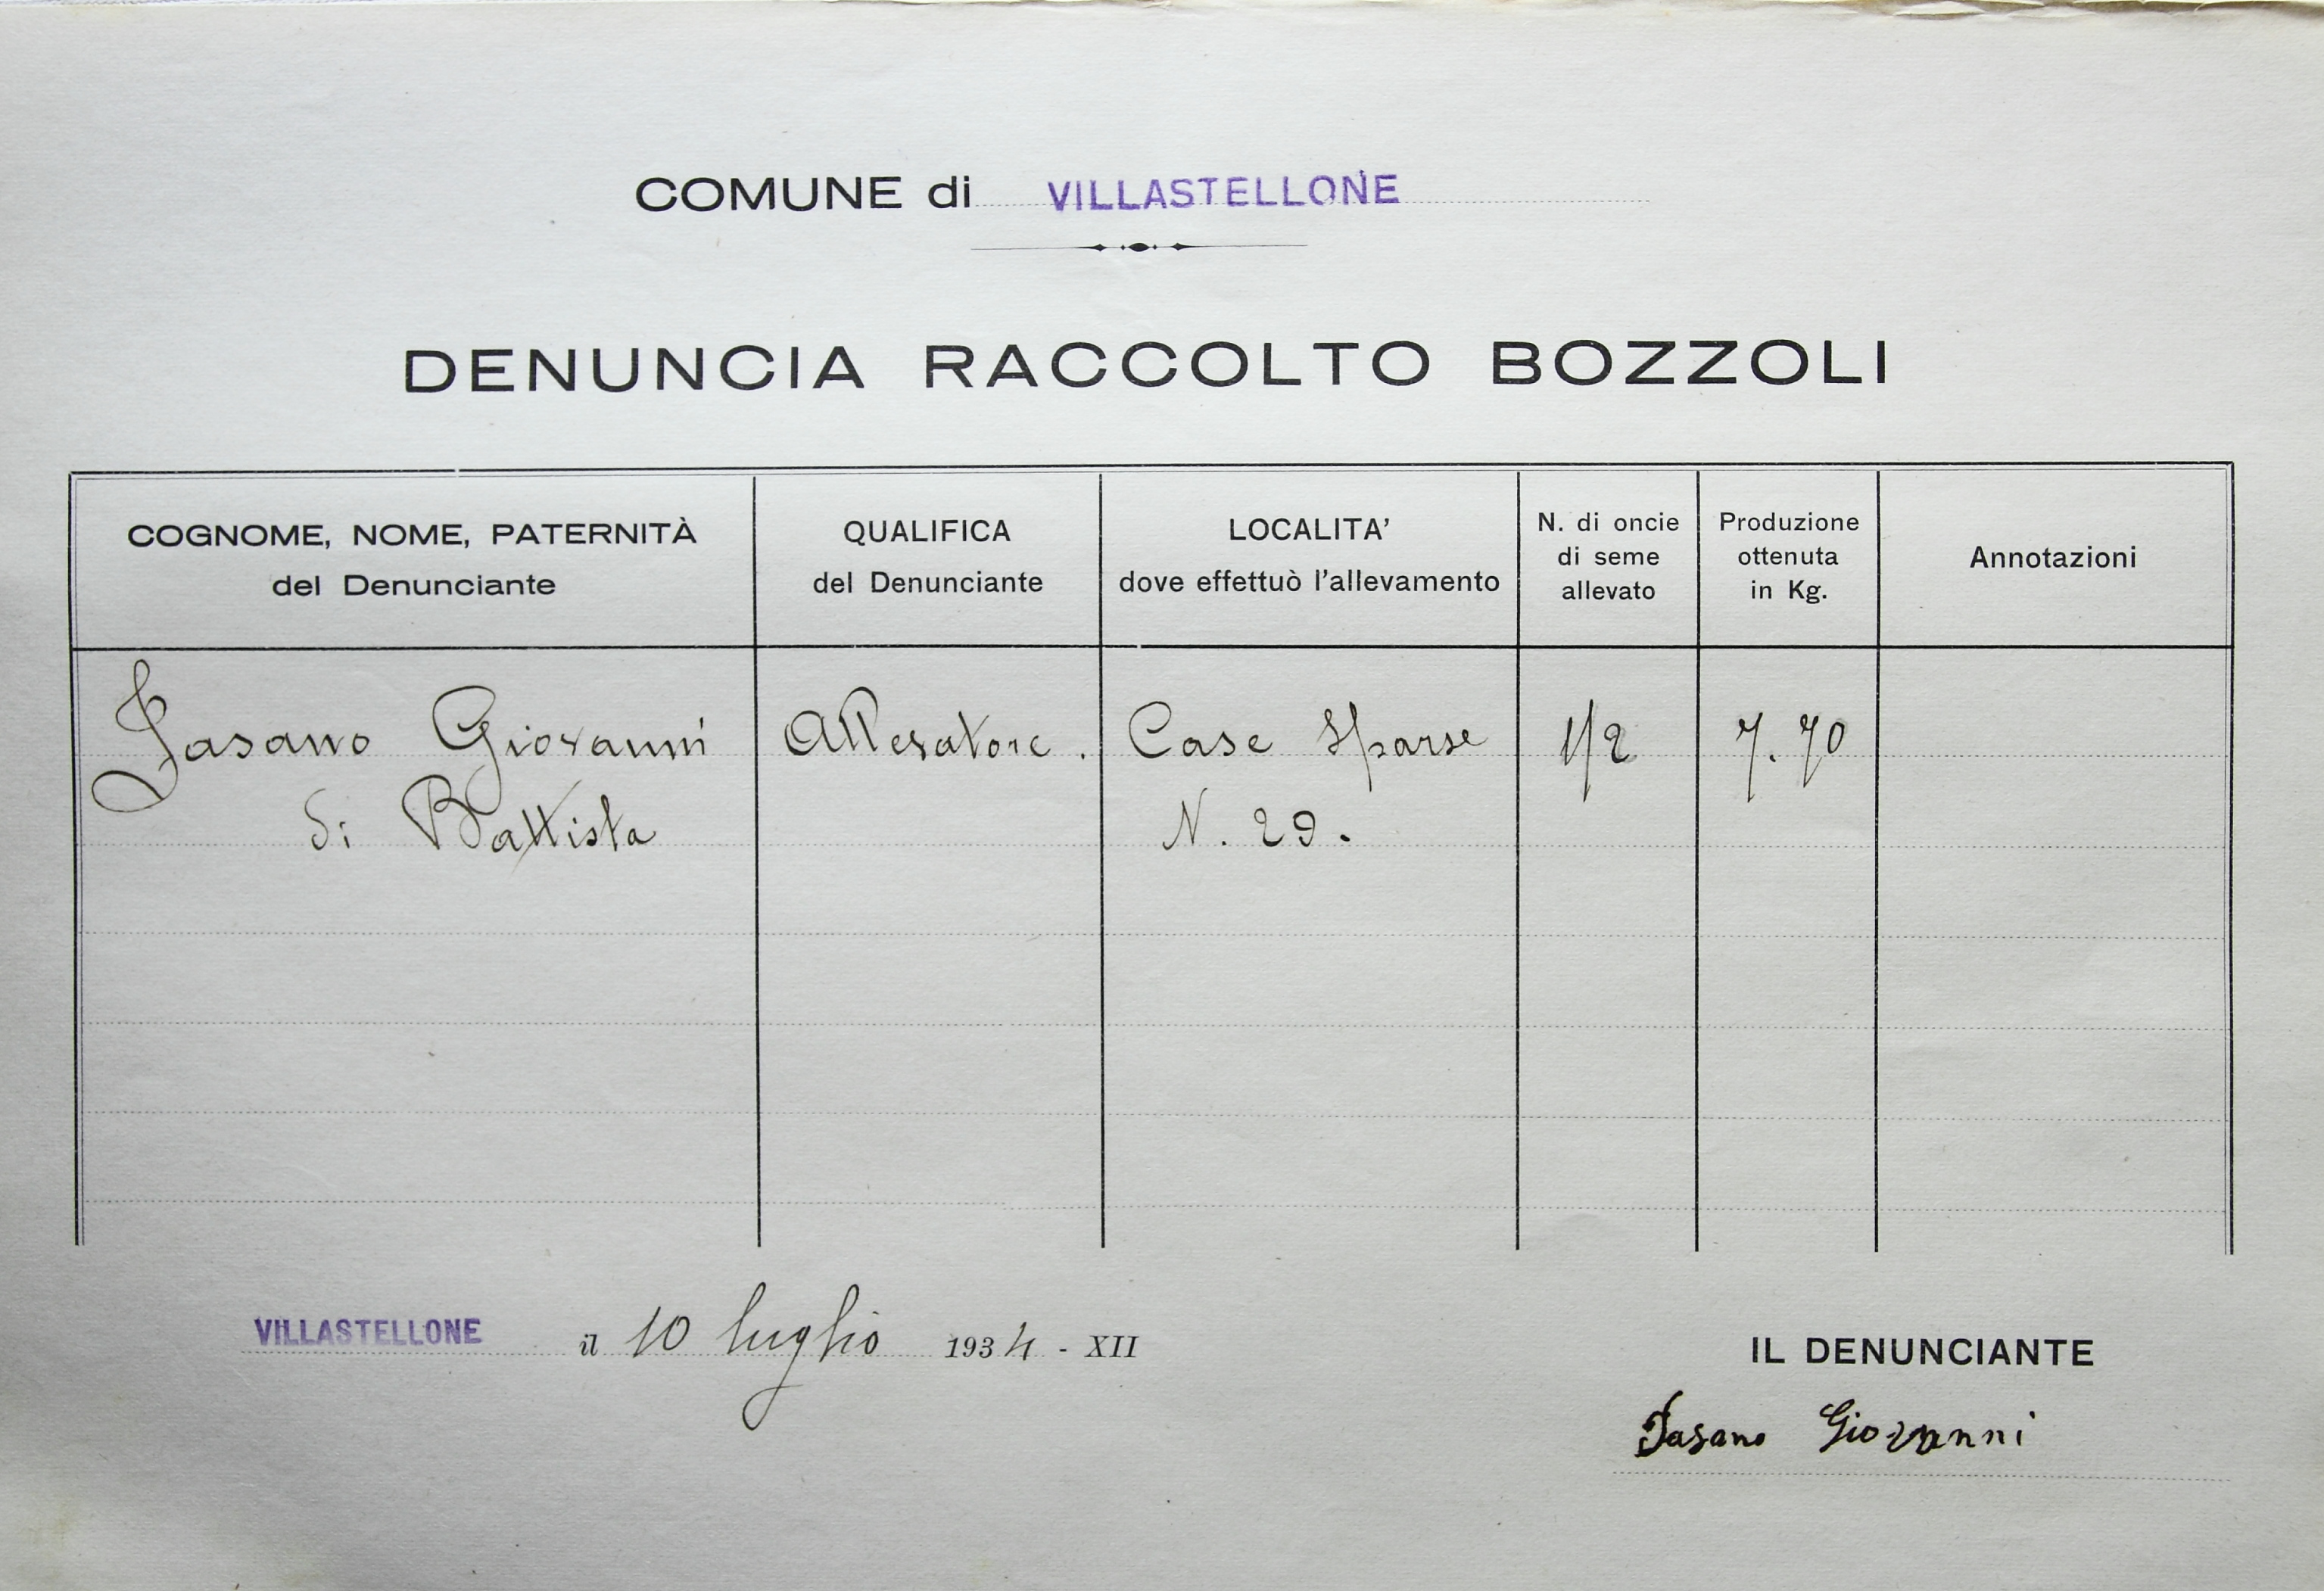 COMUNE di VILLASTELLONE
DENUNCIA RACCOLTO BOZZOLI
COGNOME, NOME, PATERNITÀ
del Denunciante
QUALIFICA
del Denunciante
LOCALITA'
dove effettuò l'allevamento
N. di oncie
di seme
allevato
Produzione
ottenuta
in Kg.
Annotazioni
Fasano Giovanni
di Battista
Allevatore.
Case Sparse
N. 29.
1/2
7.70
VILLASTELLONE il 10 luglio 1934 - XII
IL DENUNCIANTE
Fasano Giovanni